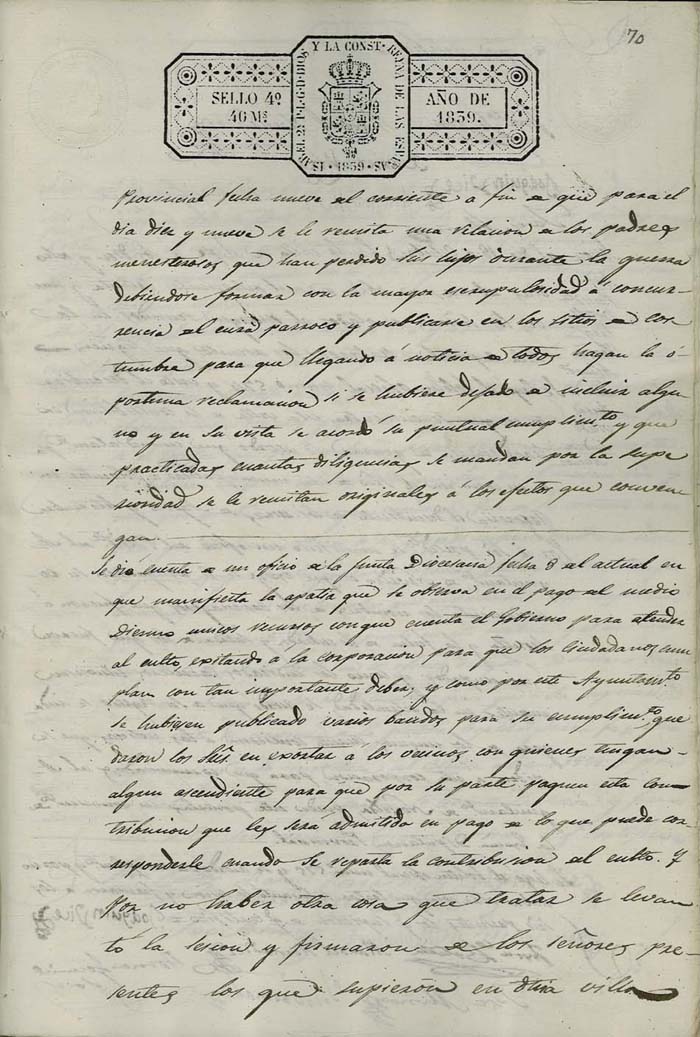 70
SELLO 4º
40 Ms
ISABEL 2ª P. L. G. D. DIOS Y LA CONST. REYNA DE LAS ESPAÑAS
1839
AÑO DE
1839.
Provincial fecha nueve del corriente a fin de que para el
dia diez y nueve se le remita una relacion de los padres
menesterosos que han perdido sus hijos durante la guerra
debiendose formar con la mayor escrupulosidad á concur-
rencia del cura parroco y publicarse en los sitios de cos-
tumbre para que llegando á noticia de todos hagan la o-
portuna reclamacion si se hubiere dejado de incluir algu-
no y en su vista se acordó su puntual cumplimto. y que
practicadas cuantas diligencias se mandan por la supe
rioridad se le remitan originales á los efectos que conven
gan.
Se dio cuenta de un oficio de la Junta Diocesana fecha 8 del actual en
que manifiesta la apatia que se observa en el pago del medio
Diezmo unicos recursos conque cuenta el Gobierno para atender
al culto, exitando á la corporacion para que los ciudadanos cum
plan con tan importante deber, y como por este Ayuntamto
se hubiesen publicado varios bandos para su cumplimto. que
daron los Sres. en exortar á los vecinos con quienes tengan
algun ascendiente para que por su parte paguen esta con
tribucion que les será admitida en pago de lo que puede cor
responderle cuando se reparta la contribucion del culto. Y
Por no haber otra cosa que tratar se levan
tó la sesion y firmaron de los señores pre-
sentes los que supieron en dicha villa